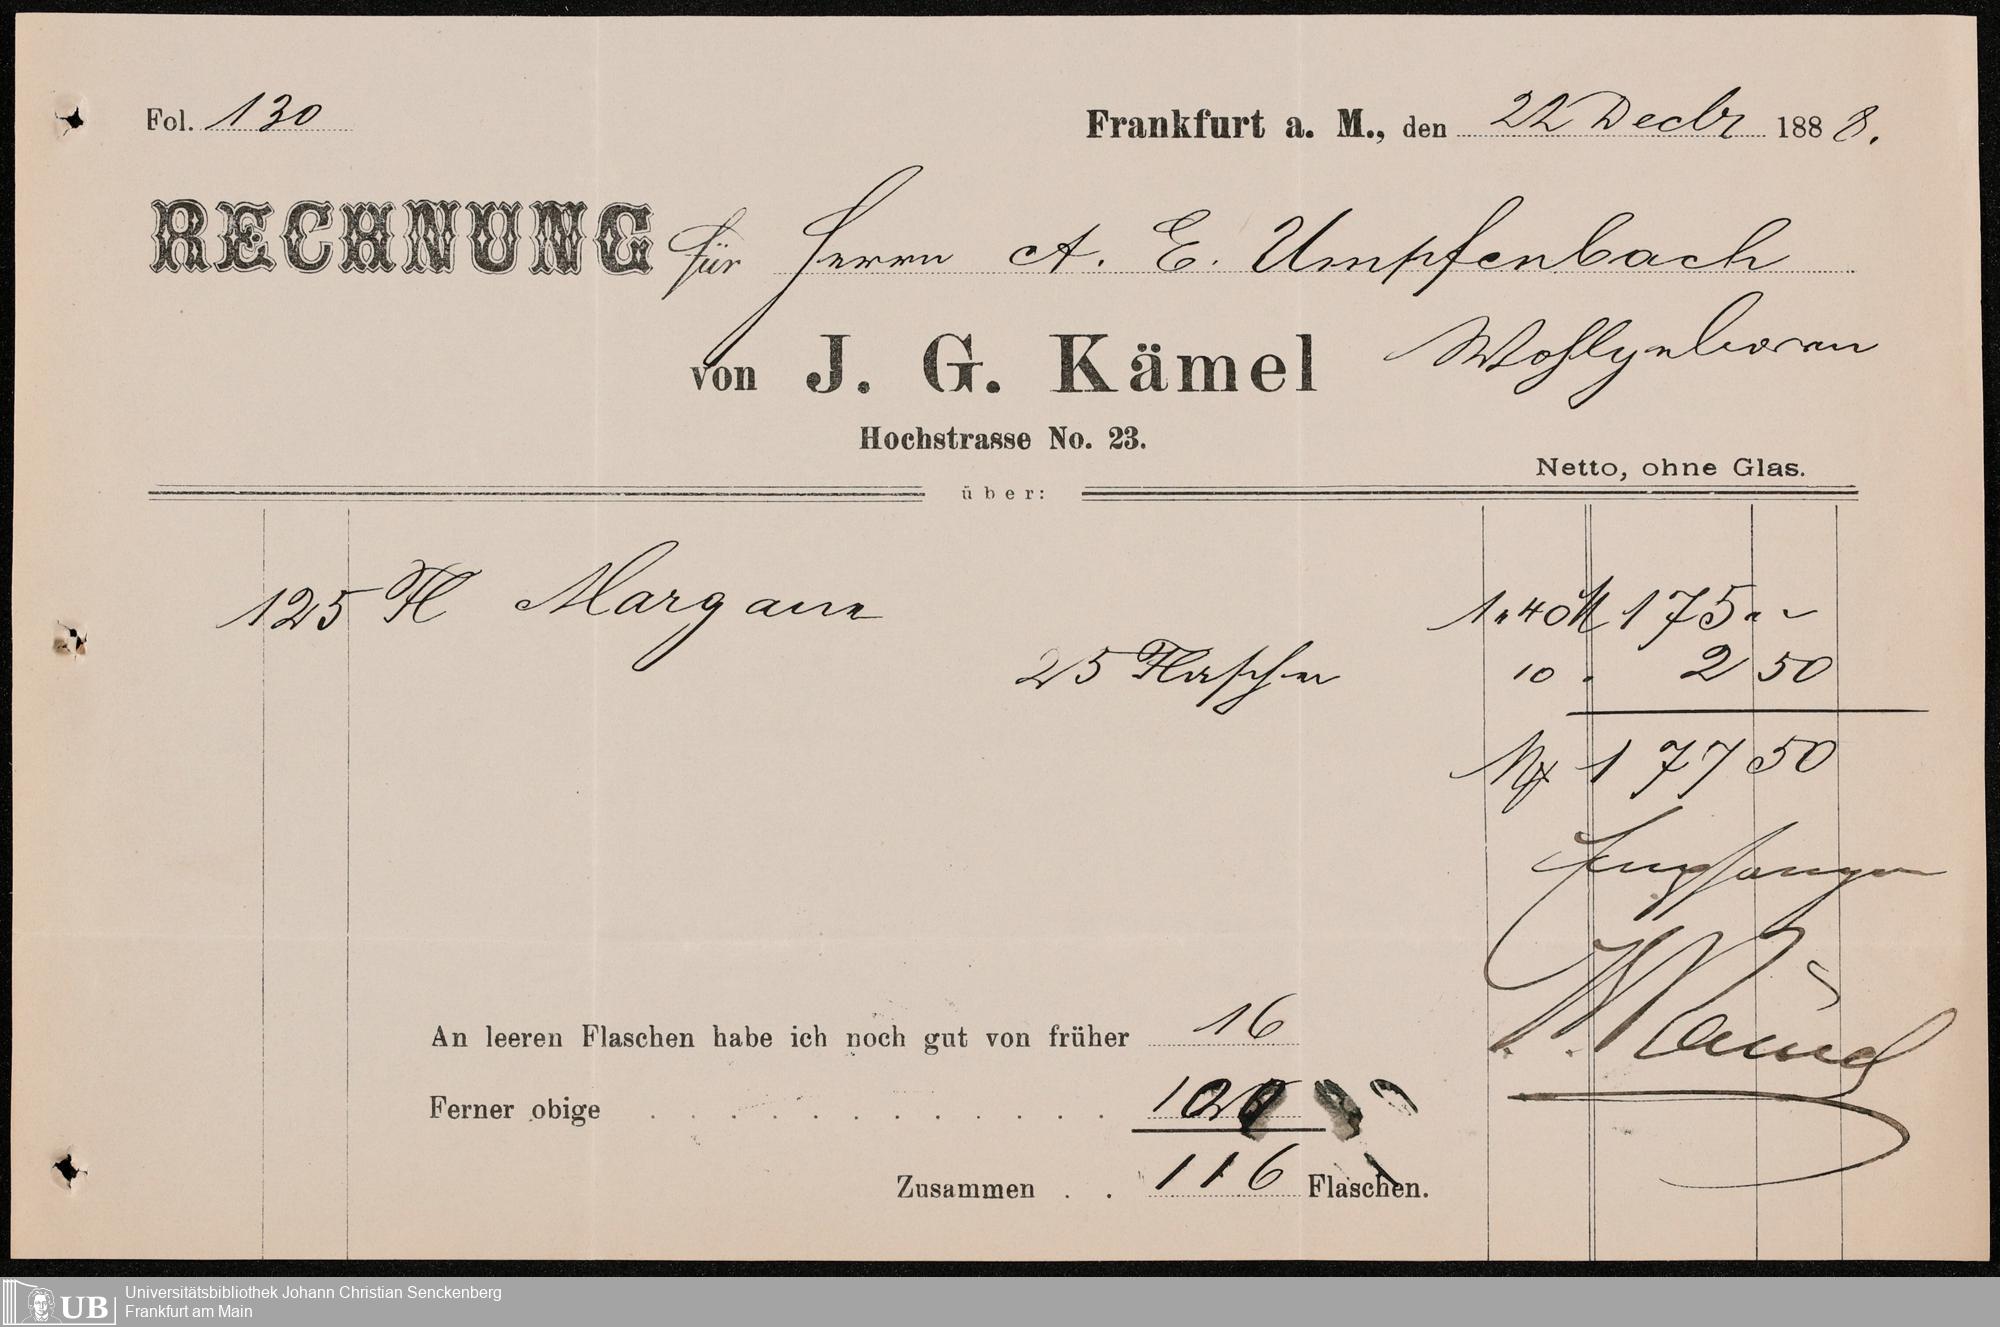 Fol. 130
Frankfurt a. M., den 22 Decbr 1888.
RECHNUNG für Herrn A. E. Umpfenbach
Wohlgeboren
von J. G. Kämel
Hochstrasse No. 23.
Netto, ohne Glas.
über:
125 Fl Margaux 1"40 M 175 " ~
25 Flaschen 10 " 2 50
Mk 177 50
Empfangen
Kämel
An leeren Flaschen habe ich noch gut von früher 16
Ferner obige . . . . . . . . . . . . 100
Zusammen . . 116 Flaschen.
UB
Universitätsbibliothek Johann Christian Senckenberg
Frankfurt am Main